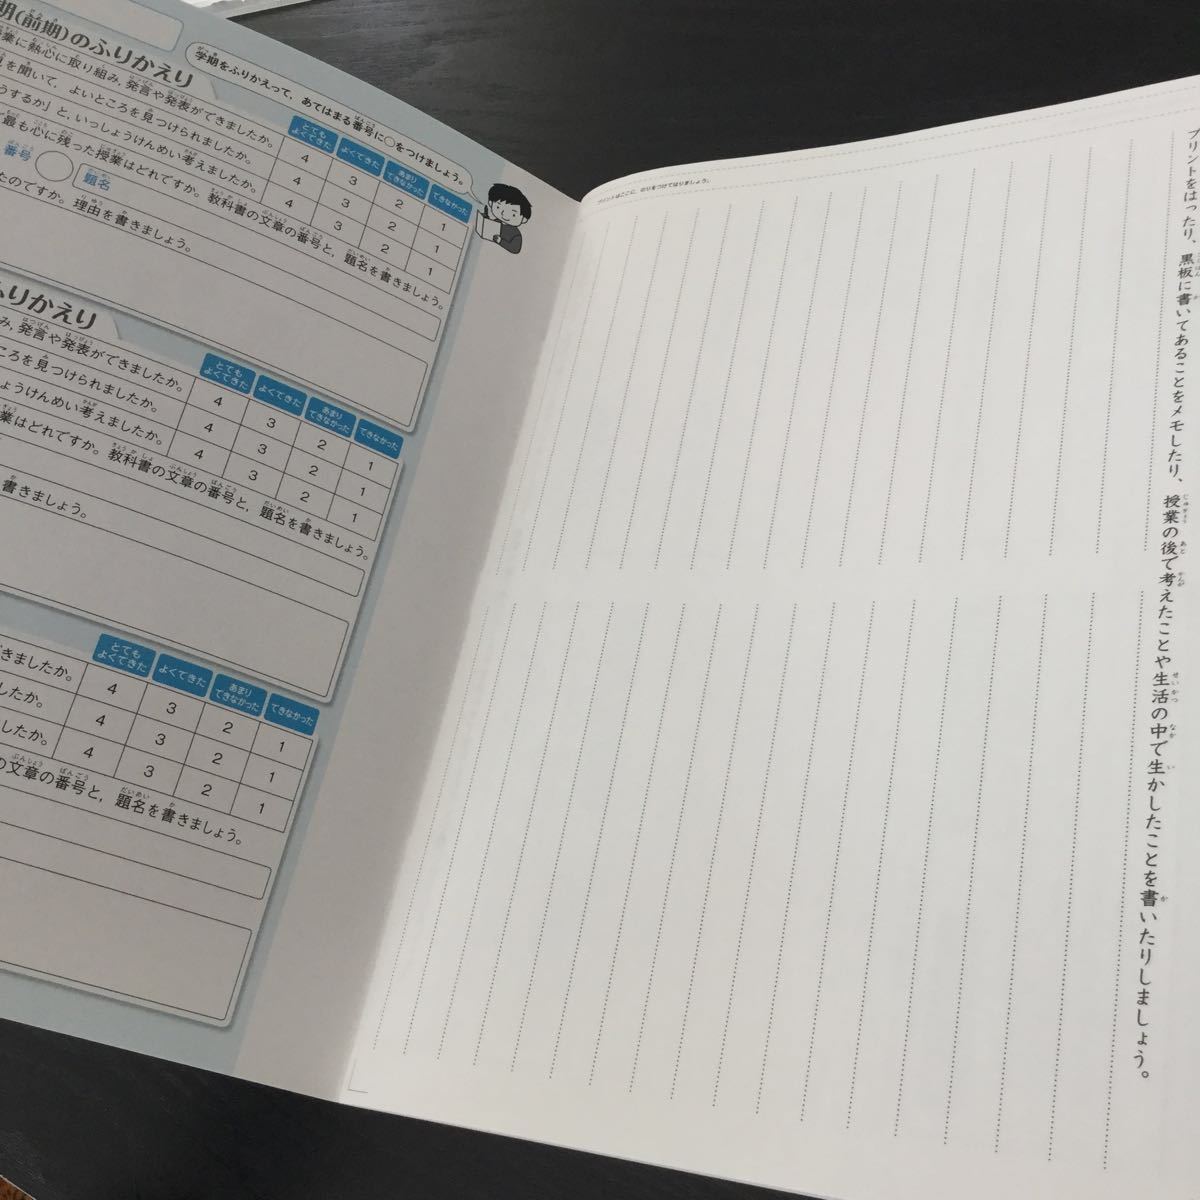 期(前期)のふりかえり
学期をふりかえって、あてはまる番号に○をつけましょう。
とてもよくできた
よくできた
あまりできなかった
できなかった
業に熱心に取り組み、発言や発表ができましたか。
4 3 2 1
を聞いて、よいところを見つけられましたか。
4 3 2 1
うするか」と、いっしょうけんめい考えましたか。
4 3 2 1
最も心に残った授業はどれですか。教科書の文章の番号と、題名を書きましょう。
番号
題名
たのですか。理由を書きましょう。
ふりかえり
とてもよくできた
よくできた
あまりできなかった
できなかった
み、発言や発表ができましたか。
4 3 2 1
ころを見つけられましたか。
4 3 2 1
しょうけんめい考えましたか。
4 3 2 1
業はどれですか。教科書の文章の番号と、題名を書きましょう。
書きましょう。
とてもよくできた
よくできた
あまりできなかった
できなかった
できましたか。
4 3 2 1
したか。
4 3 2 1
ましたか。
4 3 2 1
の文章の番号と、題名を書きましょう。
プリントをはったり、黒板に書いてあることをメモしたり、授業の後で考えたことや生活の中で生かしたことを書いたりしましょう。
プリントはここに、のりをつけてはりましょう。